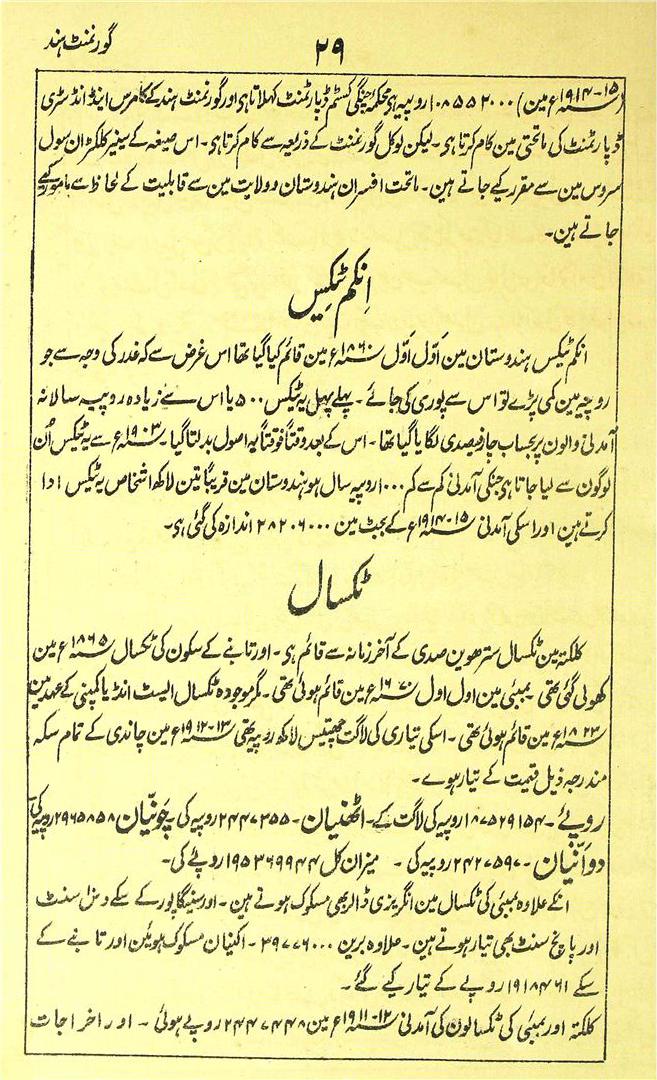 گورنمنٹ ہند
۲۹
(۱۵-۱۹۱۴ء مین) ۱۰۸۵۵۲۰۰۰ روپیہ ہی محکمۂ چنگی کسٹم ڈپارٹمنٹ کہلاتا ہی اور گورنمنٹ ہند کے کامرس اینڈ انڈسٹری
ڈپارٹمنٹ کی ماتحتی مین کام کرتا ہی۔ لیکن لوکل گورنمنٹ کے ذریعہ سے کام کرتا ہی۔ اس صیغہ کے سینیر کلکٹران سول
سروس مین سے مقرر کیے جاتے ہین۔ ماتحت افسران ہندوستان و ولایت مین سے قابلیت کے لحاظ سے مامور کیے
جاتے ہین۔
اِنکم ٹیکس
انکم ٹیکس ہندوستان مین اَوّل اَوّل ۱۸۶۰ء مین قائم کیا گیا تھا اس غرض سے کہ غدر کی وجہ سے جو
روپیہ مین کمی پڑے تو اس سے پوری کی جائے۔ پہلے پہل یہ ٹیکس ۵۰۰ یا اس سے زیادہ روپیہ سالانہ
آمدنی والون پر بحساب چار فیصدی لگایا گیا تھا۔ اس کے بعد وقتاً فوقتاً یہ اصول بدلتا گیا۔ ۱۹۰۳ء سے یہ ٹیکس اُن
لوگون سے لیا جاتا ہی جنکی آمدنی کم سے کم ۱۰۰۰ روپیہ سال ہو ہندوستان مین قریباً تین لاکھ اشخاص یہ ٹیکس ادا
کرتے ہین اور اسکی آمدنی ۱۵-۱۹۱۴ء کے بجٹ مین ۲۸۲۰۶۰۰۰ اندازہ کی گئی ہی۔
ٹکسال
کلکتہ مین ٹکسال سترھوین صدی کے آخر زمانہ سے قائم ہی۔ اور تانبے کے سکون کی ٹکسال ۱۸۶۵ء مین
کھولی گئی تھی۔ بمبئی مین اول اول ۱۶۷۰ء مین قائم ہوئی تھی۔ مگر موجودہ ٹکسال ایسٹ انڈیا کمپنی کے عہد مین
۱۸۲۳ء مین قائم ہوئی تھی۔ اسکی تیاری کی لاگت چھتیس لاکھ روپیہ تھی ۱۳-۱۹۱۲ء مین چاندی کے تمام سکہ
مندرجہ ذیل قیمت کے تیار ہوے۔
روپئے۔ ۱۸۷۵۲۹۱۵۴ روپیہ کی لاگت کے۔ اٹھنیان۔ ۲۴۴۷۲۵۵ روپیہ کی چونّیان ۲۹۶۵۸۵۸ روپیہ کی
دوانّیان۔ ۲۴۲۷۵۹۷ روپیہ کی۔ میزان کل ۱۹۵۳۶۹۹۴۴ روپئے کی۔
انکے علاوہ بمبئی کی ٹکسال مین انگریزی ڈالر بھی مسکوک ہوتے ہین۔ اور سنیگاپور کے سکے دس سنٹ
اور پانچ سنٹ بھی تیار ہوتے ہین۔ علاوہ برین ۳۹۷۷۶۰۰۰۔ اکنیان مسکوک ہوئین اور تانبے کے
سکے ۱۹۱۸۴۶۱ روپے کے تیار کیے گئے۔
کلکتہ اور بمبئی کی ٹکسالون کی آمدنی ۱۲-۱۹۱۱ء مین ۲۴۴۷۴۴۸ روپے ہوئی۔ اور اخراجات